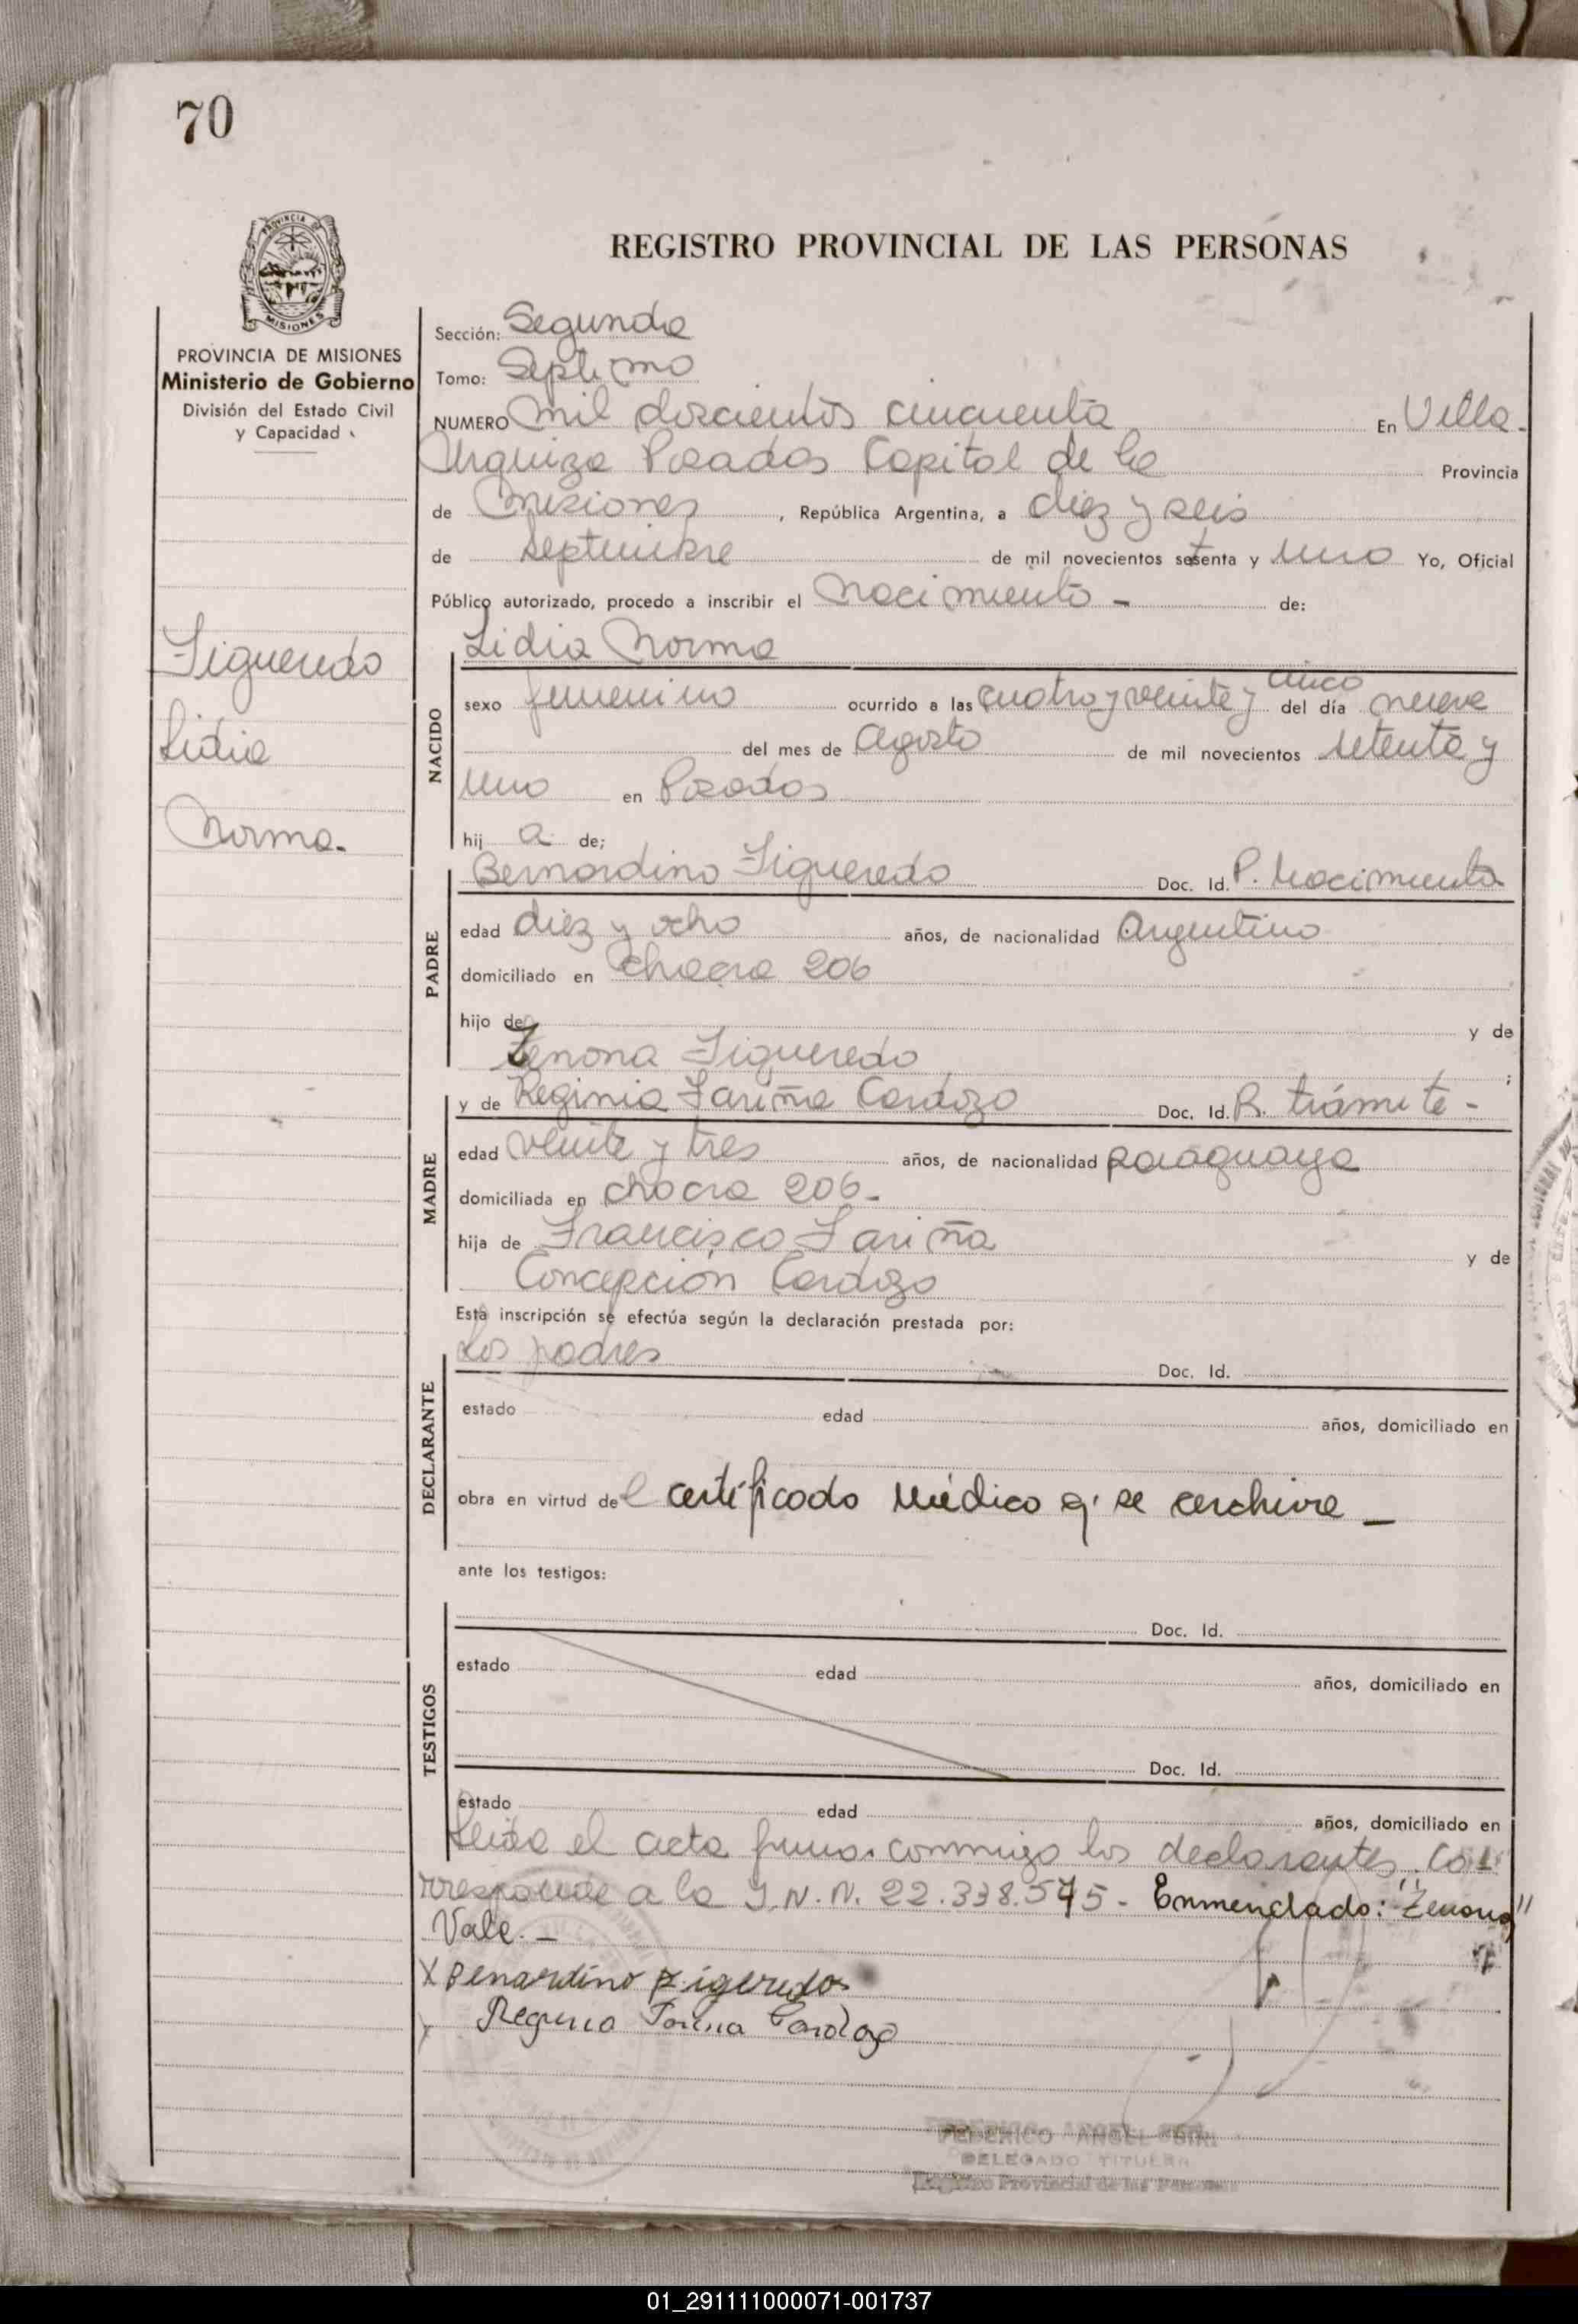 70
PROVINCIA DE
MISIONES
PROVINCIA DE MISIONES
Ministerio de Gobierno
División del Estado Civil
y Capacidad
Figueredo
Lidia
Norma.
REGISTRO PROVINCIAL DE LAS PERSONAS
Sección: Segunda
Tomo: Septimo
NUMERO Mil doscientos cincuenta En Villa
Urquiza Posadas Capital de la Provincia
de Misiones, República Argentina, a diez y seis
de Septiembre de mil novecientos setenta y uno Yo, Oficial
Público autorizado, procedo a inscribir el nacimiento - de:
Lidia Norma
NACIDO
sexo femenino ocurrido a las cuatro y veinte y cinco del día nueve
del mes de Agosto de mil novecientos setenta y
uno en Posadas
hij a de;
Bernardino Figueredo Doc. Id. P. Nacimiento
PADRE
edad diez y ocho años, de nacionalidad Argentino
domiciliado en chacra 206
hijo de y de
Zenona Figueredo ;
y de Reginia Fariña Cardozo Doc. Id. R. trámite -
MADRE
edad veinte y tres años, de nacionalidad paraguaya
domiciliada en chacra 206-
hija de Francisco Fariña y de
Concepción Cardozo
Esta inscripción se efectúa según la declaración prestada por:
Los padres Doc. Id.
DECLARANTE
estado edad años, domiciliado en
obra en virtud del certificado Médico q' se archiva -
ante los testigos:
Doc. Id.
TESTIGOS
estado edad años, domiciliado en
Doc. Id.
estado edad años, domiciliado en
Leida el acta firman conmigo los declarantes. Co
rresponde a la I.N.N. 22.338.575- Enmendado: "Zenona"
Vale. -
X Benardino Figeredos
Reginia Farina Cardozo
FEDERICO ANGEL
DELEGADO TITULAR
Registro Provincial de las Personas
01_291111000071-001737